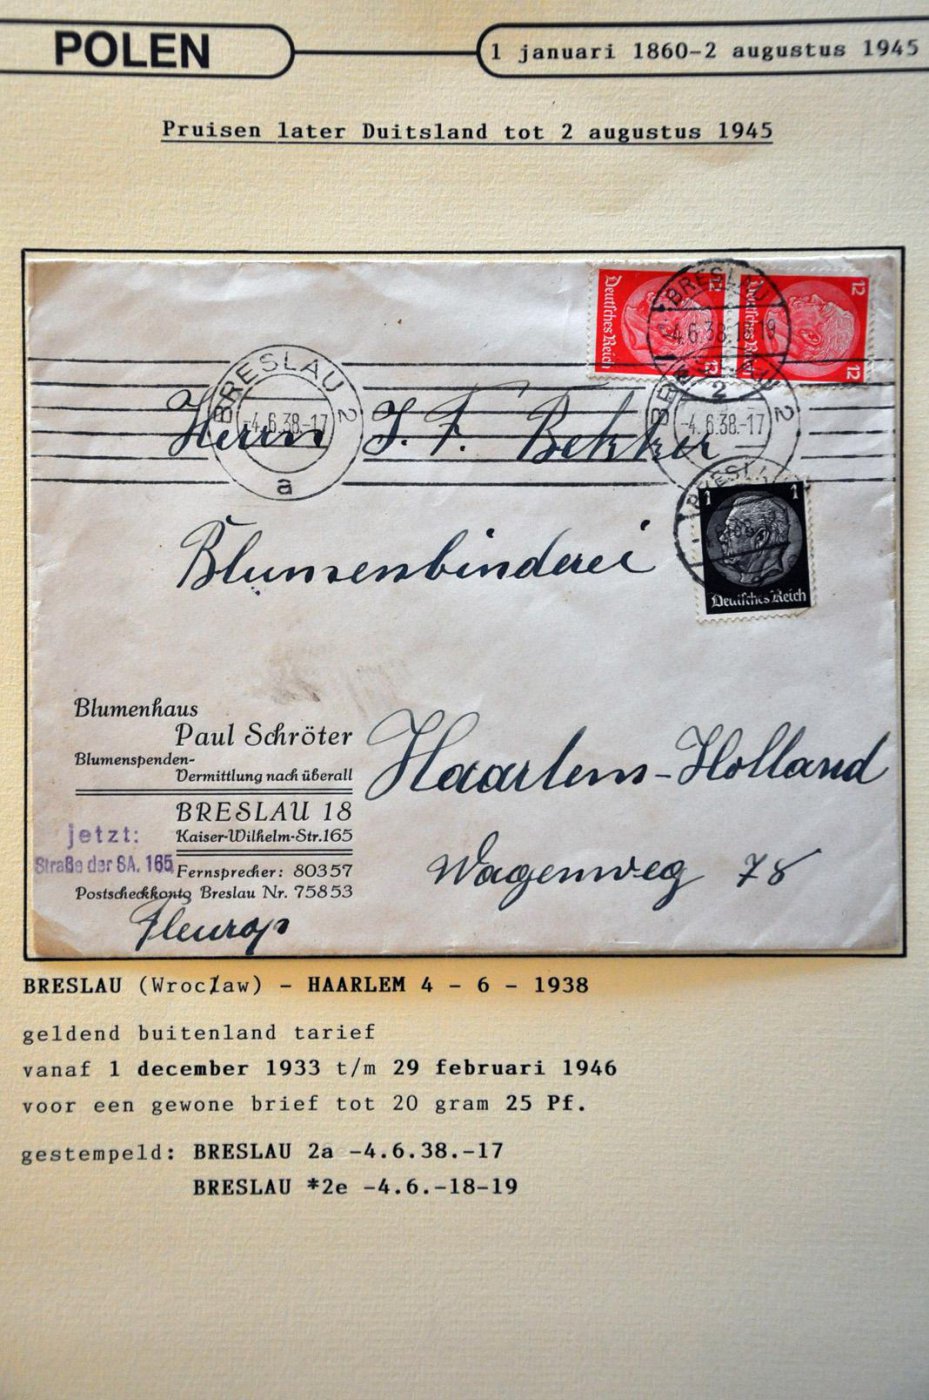 POLEN
1 januari 1860-2 augustus 1945
Pruisen later Duitsland tot 2 augustus 1945
12 12
Deutsches Reich
12
Deutsches Reich
12
BRESLAU
-4.6.38.
2
BRESLAU 2
-4.6.38.-17
a
2
-4.6.38.-17
Herrn J. F. Bekker
1 1
Deutsches Reich
Blumenbinderei
Blumenhaus
Paul Schröter
Blumenspenden-
Vermittlung nach überall
BRESLAU 18
Kaiser-Wilhelm-Str. 165
jetzt:
Straße der SA. 165
Fernsprecher: 80357
Postscheckkonto Breslau Nr. 75853
Fleurop
Haarlem-Holland
Wagenweg 78
BRESLAU (Wrocław) - HAARLEM 4 - 6 - 1938
geldend buitenland tarief
vanaf 1 december 1933 t/m 29 februari 1946
voor een gewone brief tot 20 gram 25 Pf.
gestempeld: BRESLAU 2a -4.6.38.-17
BRESLAU *2e -4.6.-18-19